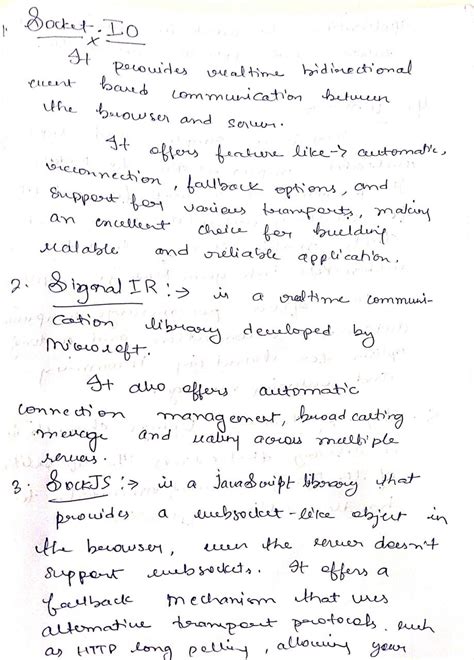 1. Socket.IO
It provides realtime bidirectional
event based communication between
the browser and server.
It offers feature like → automatic,
reconnection, fallback options, and
support for various transports, making
an excellent choice for building
scalable and reliable application.
2. SignalIR :→ is a realtime communi-
cation library developed by
Microsoft.
It also offers automatic
connection management, broad casting
message and scaling across multiple
servers.
3. SockJS :→ is a JavaScript library that
provides a websocket-like object in
the browser, even the server doesn't
support websockets. It offers a
fallback mechanism that uses
alternative transport protocols, such
as HTTP long polling, allowing your